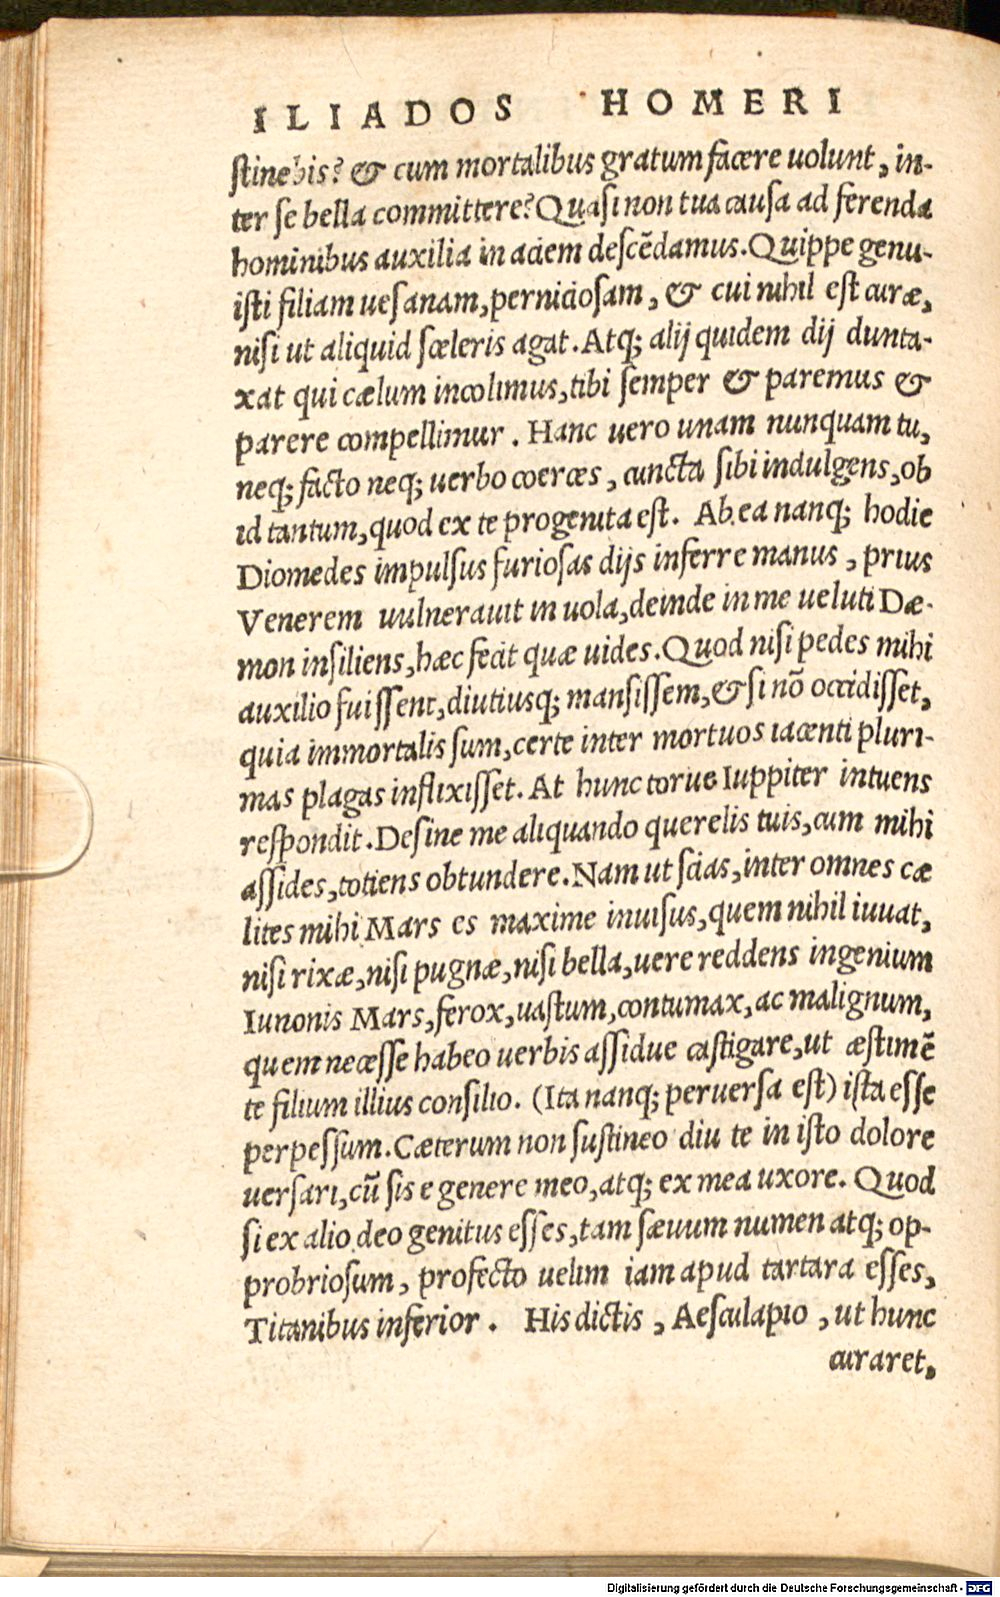 ILIADOS HOMERI
ſtinebis? & cum mortalibus gratum facere uolunt, in-
ter ſe bella committere? Quaſi non tua cauſa ad ferenda
hominibus auxilia in aciem deſcẽdamus. Quippe genu-
iſti filiam ueſanam, pernicioſam, & cui nihil eſt curæ,
niſi ut aliquid ſceleris agat. Atq; alij quidem dij dunta-
xat qui cælum incolimus, tibi ſemper & paremus &
parere compellimur. Hanc uero unam nunquam tu,
neq; facto neq; uerbo coerces, cuncta ſibi indulgens, ob
id tantum, quod ex te progenita eſt. Ab ea nanq; hodie
Diomedes impulſus furioſas dijs inferre manus, prius
Venerem uulnerauit in uola, deinde in me ueluti Dæ-
mon inſiliens, hæc fecit quæ uides. Quod niſi pedes mihi
auxilio fuiſſent, diutiusq; manſiſſem, & ſi nõ occidiſſet,
quia immortalis ſum, certe inter mortuos iacenti pluri-
mas plagas inflixiſſet. At hunc torue Iuppiter intuens
reſpondit. Deſine me aliquando querelis tuis, cum mihi
aſſides, totiens obtundere. Nam ut ſcias, inter omnes cæ
lites mihi Mars es maxime inuiſus, quem nihil iuuat,
niſi rixæ, niſi pugnæ, niſi bella, uere reddens ingenium
Iunonis Mars, ferox, uaſtum, contumax, ac malignum,
quem neceſſe habeo uerbis aſſidue caſtigare, ut æſtimẽ
te filium illius conſilio. (Ita nanq; peruerſa eſt) iſta eſſe
perpeſſum. Cæterum non ſuſtineo diu te in iſto dolore
uerſari, cũ ſis e genere meo, atq; ex mea uxore. Quod
ſi ex alio deo genitus eſſes, tam ſæuum numen atq; op-
probrioſum, profecto uelim iam apud tartara eſſes,
Titanibus inferior. His dictis, Aeſculapio, ut hunc
curaret,
Digitalisierung gefördert durch die Deutsche Forschungsgemeinschaft - DFG